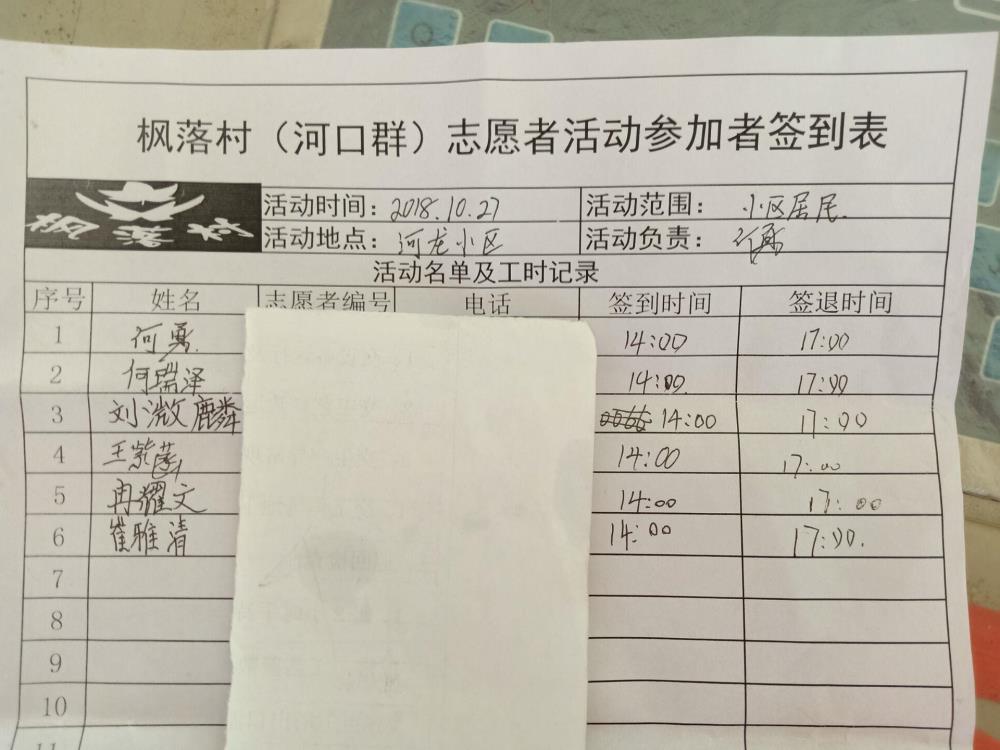 枫落村（河口群）志愿者活动参加者签到表
枫落村
活动时间：2018.10.27 活动范围：小区居民
活动地点：河龙小区 活动负责：何勇
活动名单及工时记录
序号 姓名 志愿者编号 电话 签到时间 签退时间
1 何勇 14:00 17:00
2 何瑞泽 14:00 17:00
3 刘微麟 14:00 17:00
4 王紫菡 14:00 17:00
5 冉耀文 14:00 17:00
6 崔雅清 14:00 17:00.
7
8
9
10
11